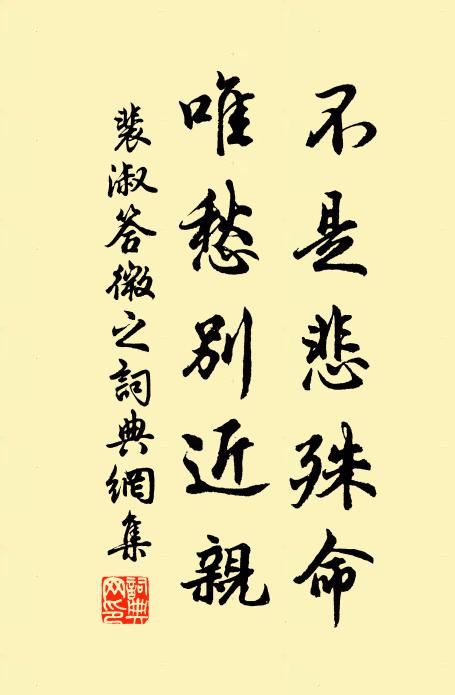 不是悲殊命
唯愁别近親
裴淑答微之詞典網集
詞典网印